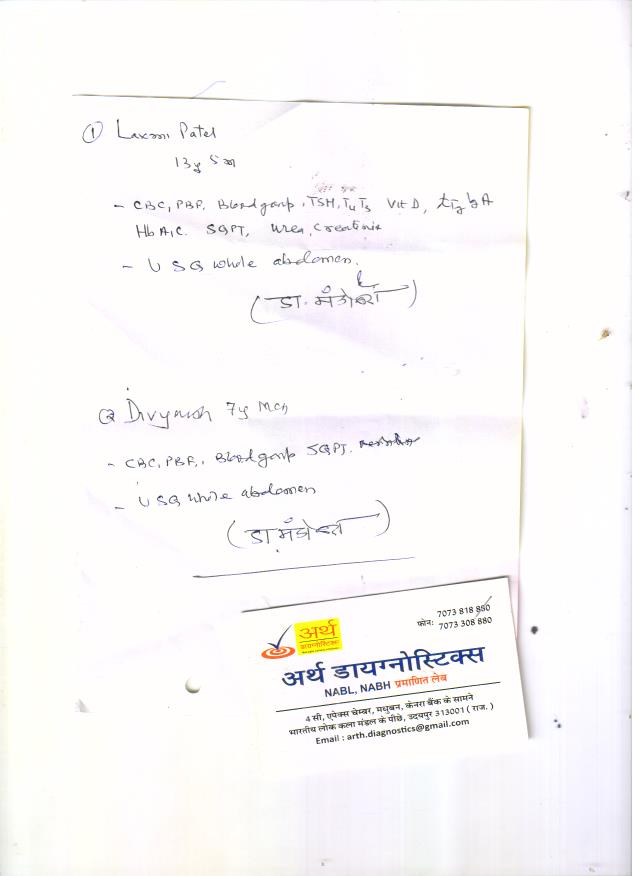 ① Laxmi Patel
13y 5m
- CBC, PBF, Blood group, TSH, T4 T3 Vit D, tTg IgA
HbA1C. SGPT, Urea, Creatinine
- USG whole abdomen.
(डा.
② Divyansh 7y Mch
- CBC, PBF, Blood group SGPT.
- USG whole abdomen
(डा
7073 818 880
फोन: 7073 308 880
अर्थ
डायग्नोस्टिक्स
अर्थ डायग्नोस्टिक्स
NABL, NABH प्रमाणित लेब
4 सी, एपेक्स चेम्बर, मधुबन, केनरा बैंक के सामने
भारतीय लोक कला मंडल के पीछे, उदयपुर 313001 ( राज. )
Email : arth.diagnostics@gmail.com